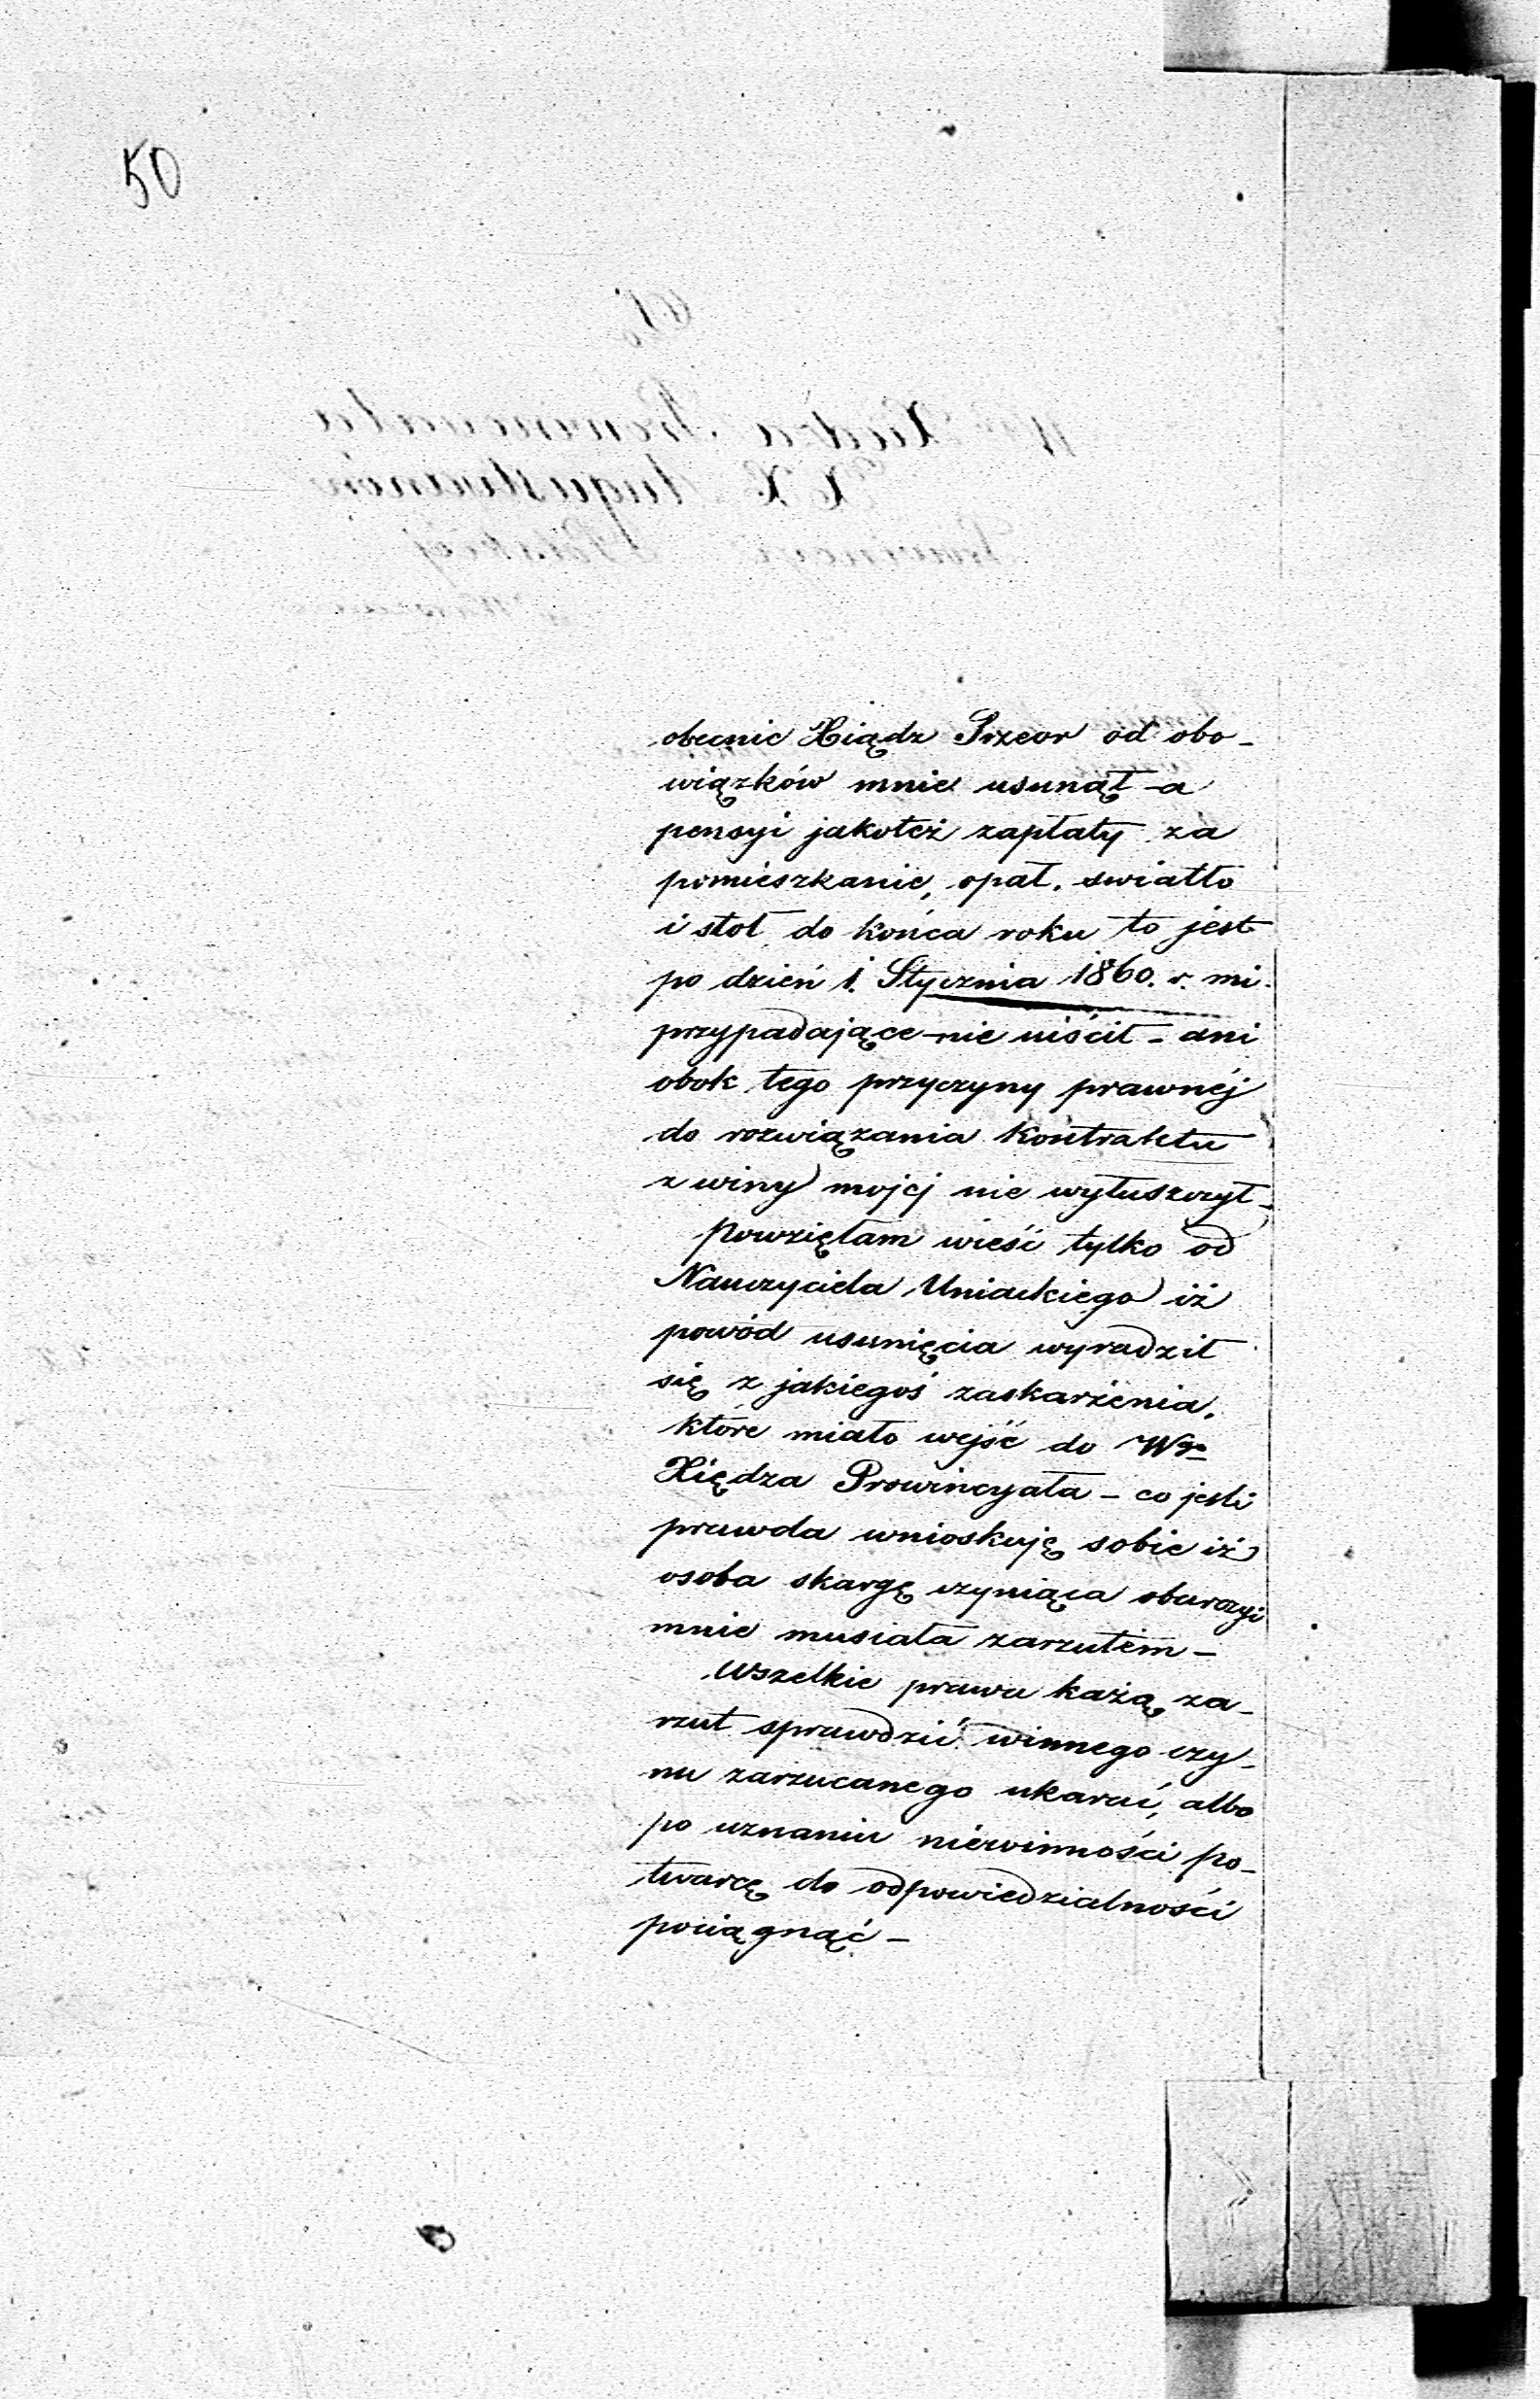 50
obecnie Xiądz Przeor od obo-
wiązków mnie usunął - a
pensyi jakoteż zapłaty za
pomieszkanie, opał, swiatło
i stoł do końca roku to jest
po dzień 1. Stycznia 1860. r. mi
przypadające - nie uiścił - ani
obok tego przyczyny prawnéj
do rozwiązania kontraktu
z winy mojej nie wyłuszczył -
Powzięłam wieść tylko od
Nauczyciela Uniackiego iż
powód usunięcia wyradził
się z jakiegoś zaskarżenia,
które miało wejść do Wgo
Xiędza Prowincyała - co jesli
prawda wnioskuję sobie iż
osoba skargę czyniąca oburczyć
mnie musiała zarzutem -
Wszelkie prawa każą za-
rzut sprawdzić winnego czy-
nu zarzucanego ukarać, albo
po uznaniu niewinności po-
twarcę do odpowiedzialności
pociągnąć -